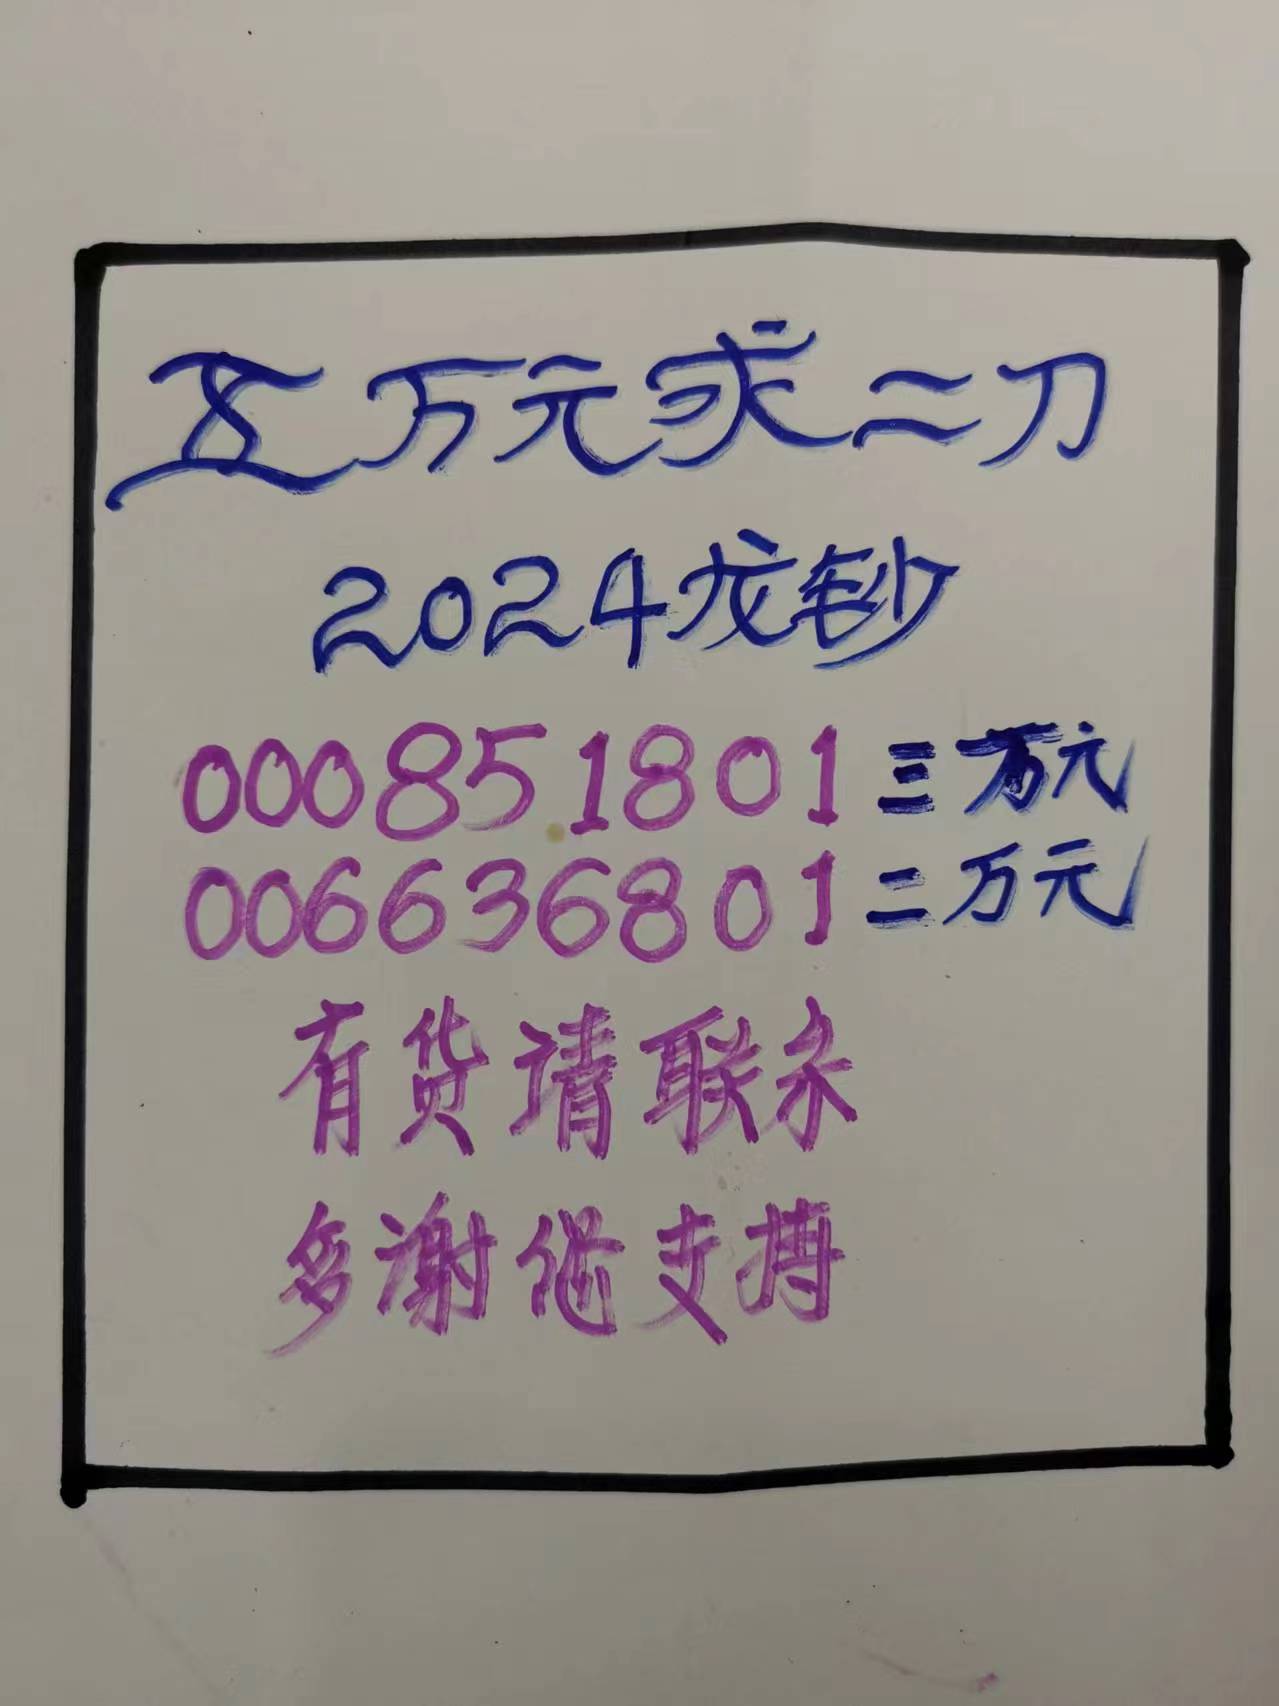 五万元求二刀
2024龙钞
000851801三万元
006636801二万元
有货请联系
多谢您支持